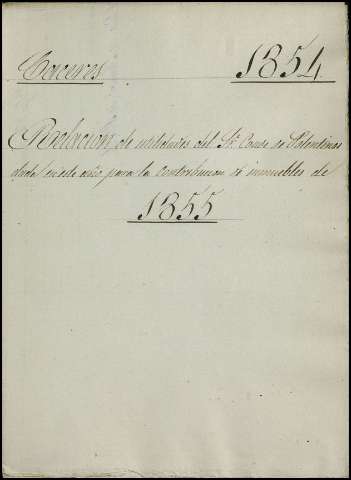 Caceres 1854
Relación de utilidades del Sr. Conde de Polentinos
dada en este año para la contribucion de inmuebles de
1855